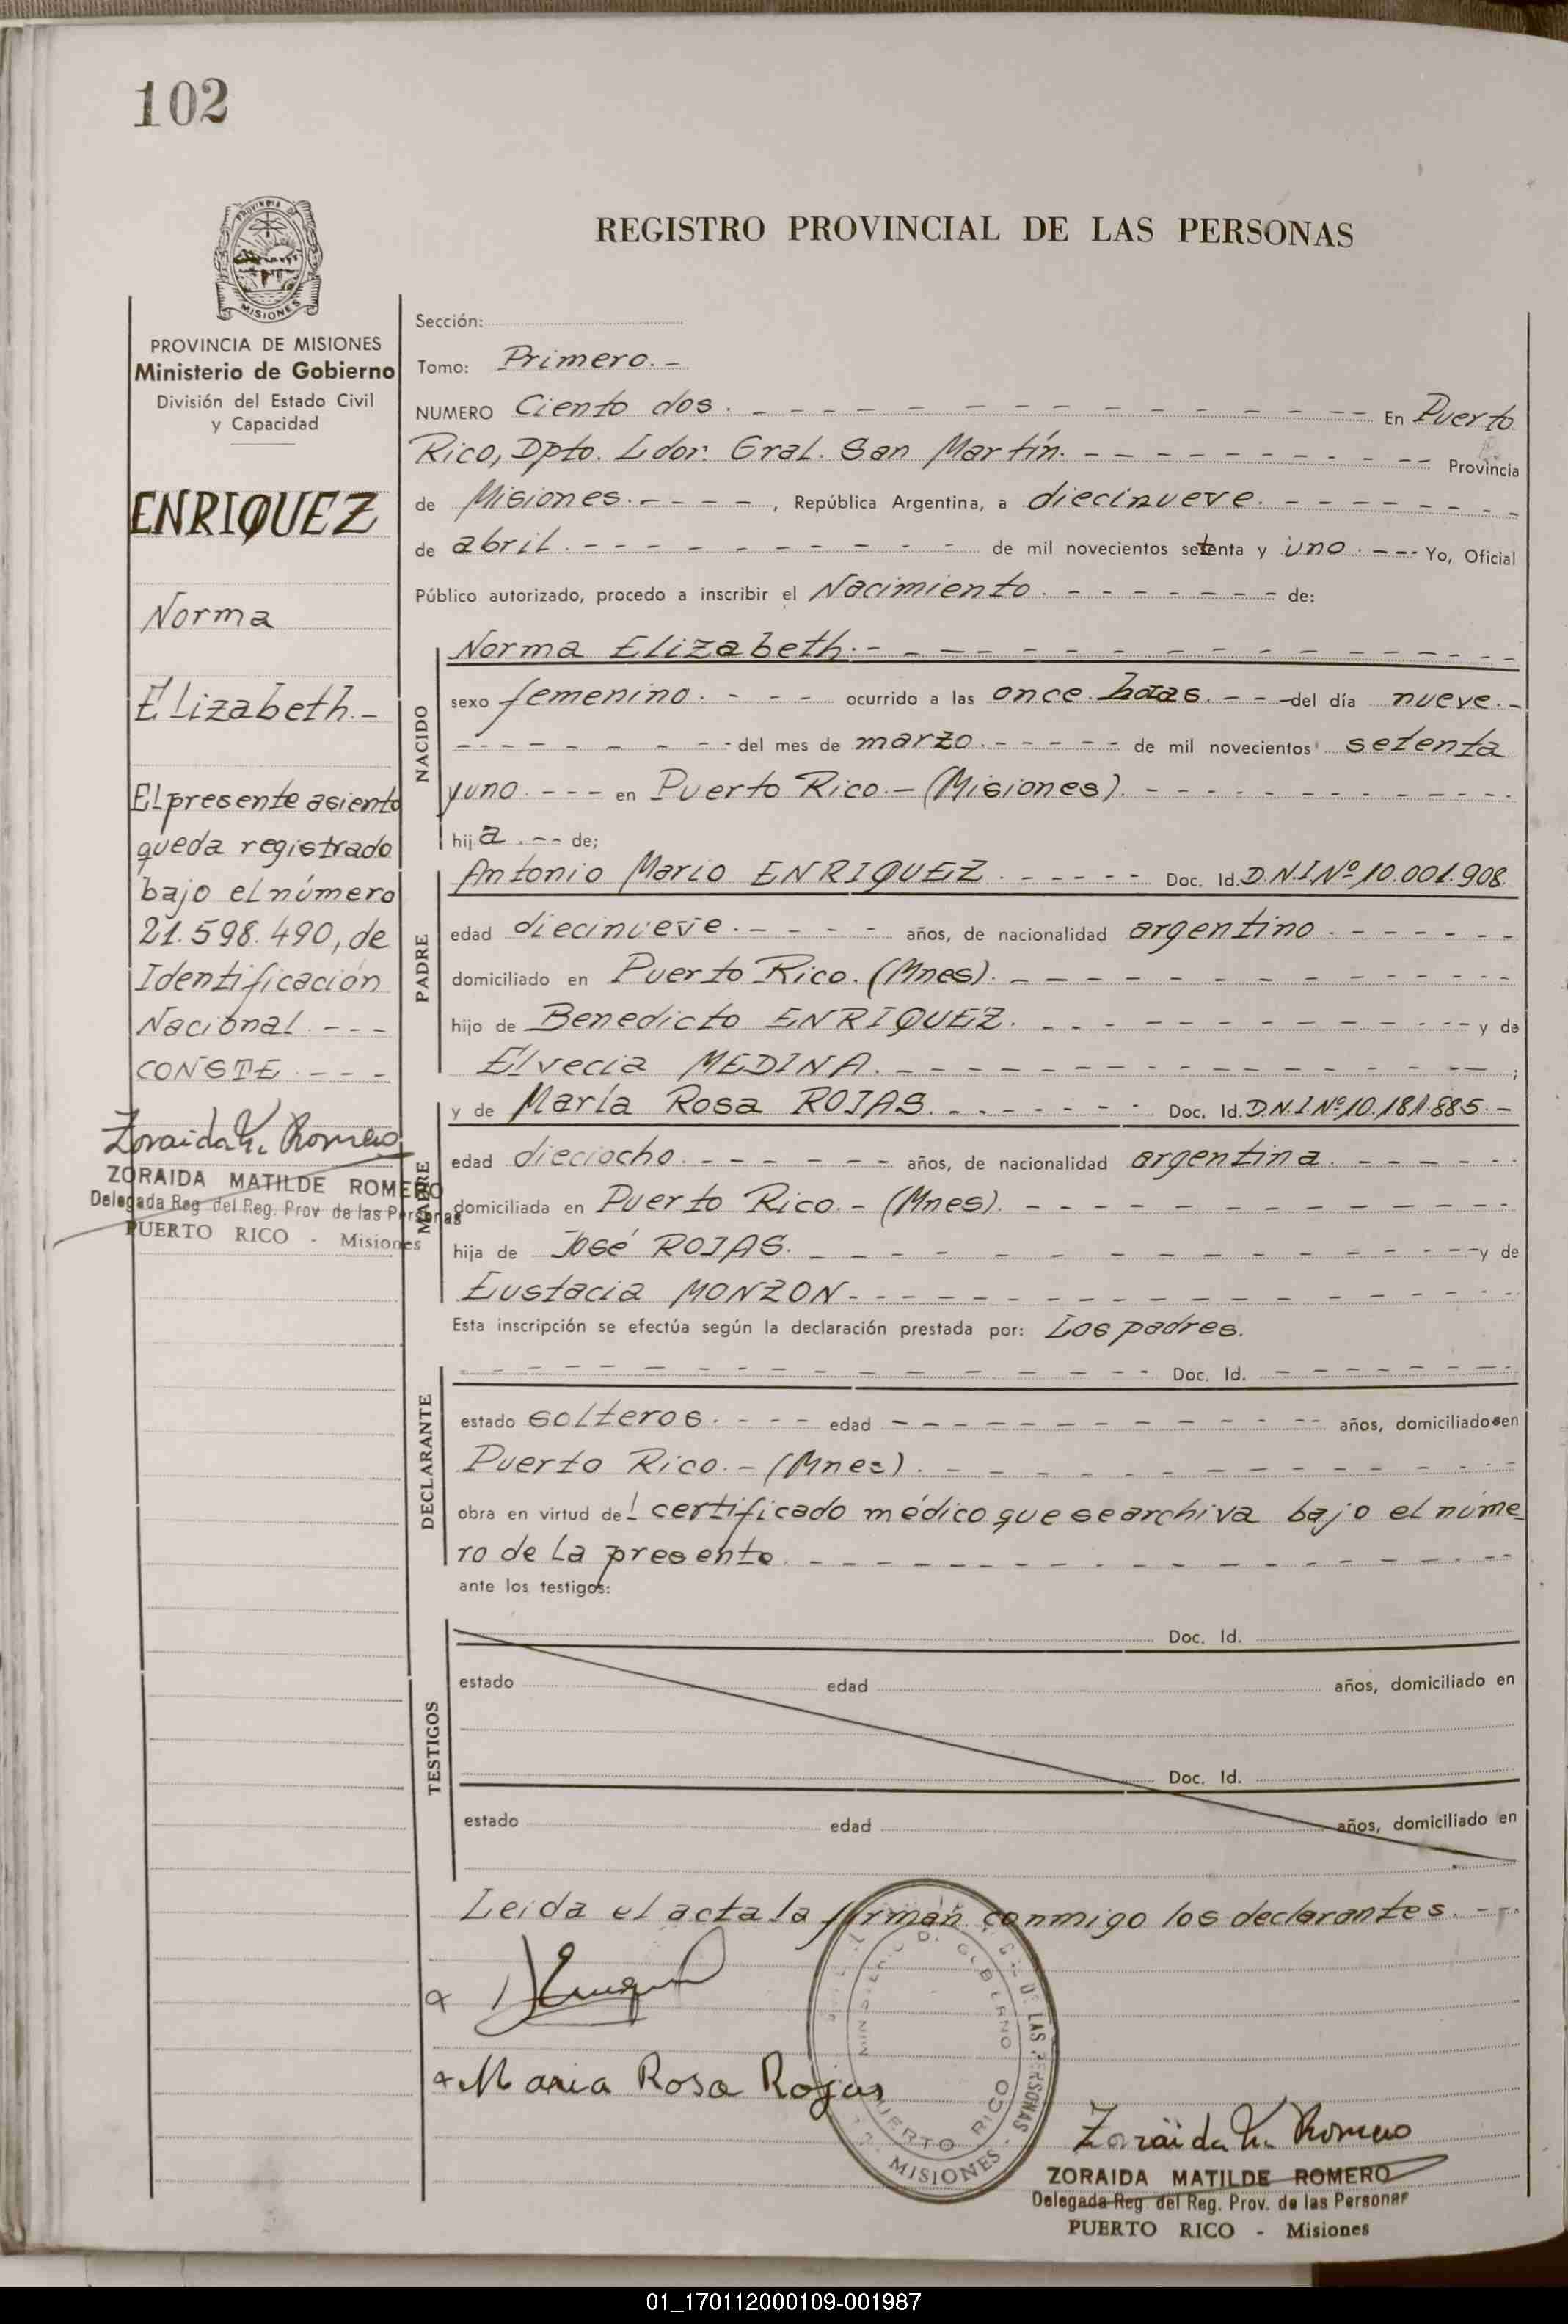 102
PROVINCIA DE
MISIONES
PROVINCIA DE MISIONES
Ministerio de Gobierno
División del Estado Civil
y Capacidad
ENRIQUEZ
Norma
Elizabeth.-
El presente asiento
queda registrado
bajo el número
21.598.490, de
Identificación
Nacional. - - -
CONSTE. - - -
Zoraida M. Romero
ZORAIDA MATILDE ROMERO
Delegada Reg del Reg. Prov de las Personas
PUERTO RICO - Misiones
REGISTRO PROVINCIAL DE LAS PERSONAS
Sección:
Tomo: Primero.-
NUMERO Ciento dos. - - - En Puerto
Rico, Dpto. Ldor. Gral. San Martín. - - - Provincia
de Misiones. - - - -, República Argentina, a diecinueve. - - -
de abril. - - - de mil novecientos setenta y uno. - - - Yo, Oficial
Público autorizado, procedo a inscribir el Nacimiento. - - - de:
NACIDO
Norma Elizabeth. - - -
sexo femenino. - - - ocurrido a las once horas. - - - del día nueve. -
- - - del mes de marzo. - - - de mil novecientos setenta
y uno. - - - en Puerto Rico.- (Misiones). - - -
hija. - - de;
PADRE
Antonio Mario ENRIQUEZ. - - - Doc. Id. D.N.I. Nº 10.001.908.
edad diecinueve. - - - años, de nacionalidad argentino. - - -
domiciliado en Puerto Rico. (Mnes). - - -
hijo de Benedicto ENRIQUEZ. - - - y de
Elvecia MEDINA. - - - ;
MADRE
y de María Rosa ROJAS. - - - Doc. Id. D.N.I Nº 10.181.885. -
edad dieciocho. - - - años, de nacionalidad argentina. - - -
domiciliada en Puerto Rico. - (Mnes). - - -
hija de José ROJAS. - - - y de
Eustacia MONZON. - - -
Esta inscripción se efectúa según la declaración prestada por: Los padres.
DECLARANTE
- - - Doc. Id. - - -
estado solteros. - - - edad - - - años, domiciliados en
Puerto Rico. - (Mnes). - - -
obra en virtud del certificado médico que se archiva bajo el núme
ro de la presente. - - -
ante los testigos:
TESTIGOS
Doc. Id.
estado edad años, domiciliado en
Doc. Id.
estado edad años, domiciliado en
Leida el acta la firman conmigo los declarantes. - -
Maria Rosa Rojas
DE LAS PERSONAS
MINISTERIO D. GOBIERNO
PUERTO RICO
MISIONES
Zoraida M. Romero
ZORAIDA MATILDE ROMERO
Delegada Reg del Reg. Prov. de las Personas
PUERTO RICO - Misiones
01_170112000109-001987